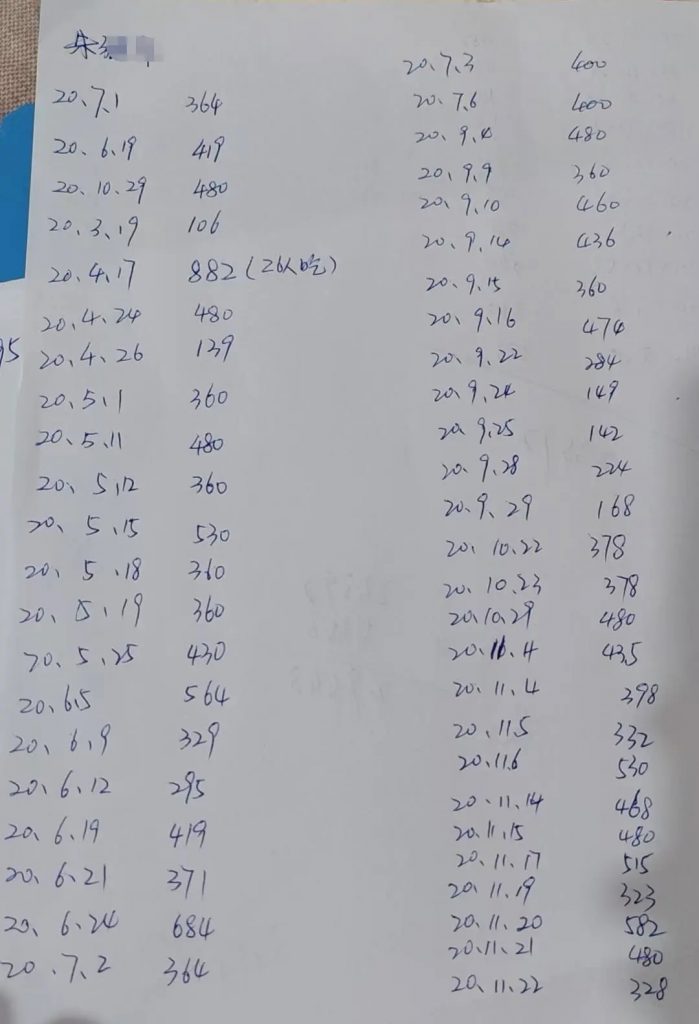 朱
20.7.1 364
20.6.19 419
20.10.29 480
20.3.19 106
20.4.17 882(26人吃)
20.4.24 480
20.4.26 139
20.5.1 360
20.5.11 480
20.5.12 360
20.5.15 530
20.5.18 360
20.5.19 360
20.5.25 430
20.6.5 564
20.6.9 329
20.6.12 295
20.6.19 419
20.6.21 371
20.6.24 684
20.7.2 364
20.7.3 400
20.7.6 400
20.9.4 480
20.9.9 360
20.9.10 460
20.9.14 436
20.9.15 360
20.9.16 474
20.9.22 284
20.9.24 149
20.9.25 142
20.9.28 224
20.9.29 168
20.10.22 378
20.10.23 378
20.10.29 480
20.11.4 435
20.11.4 398
20.11.5 332
20.11.6 530
20.11.14 468
20.11.15 480
20.11.17 515
20.11.19 323
20.11.20 582
20.11.21 480
20.11.22 328